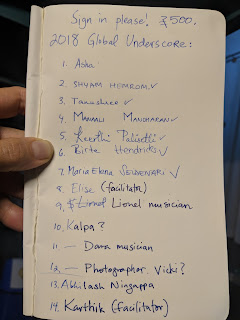 Sign in please! ₹500,
2018 Global Underscore:
1. Asha
2. SHYAM HEMROM ✓
3. Tanushree ✓
4. MANALI MANOHARAN ✓
5. Keerthi Palisetti ✓
6. Birte Hendricks ✓
7. Maria Elena SELDENARI ✓
8. Elise (facilitator)
9. Lionel Lionel musician
10. Kalpa?
11 — Dana musician
12. — Photographer Vicki?
13. Abhilash Ningappa
14. Karthik (facilitator)